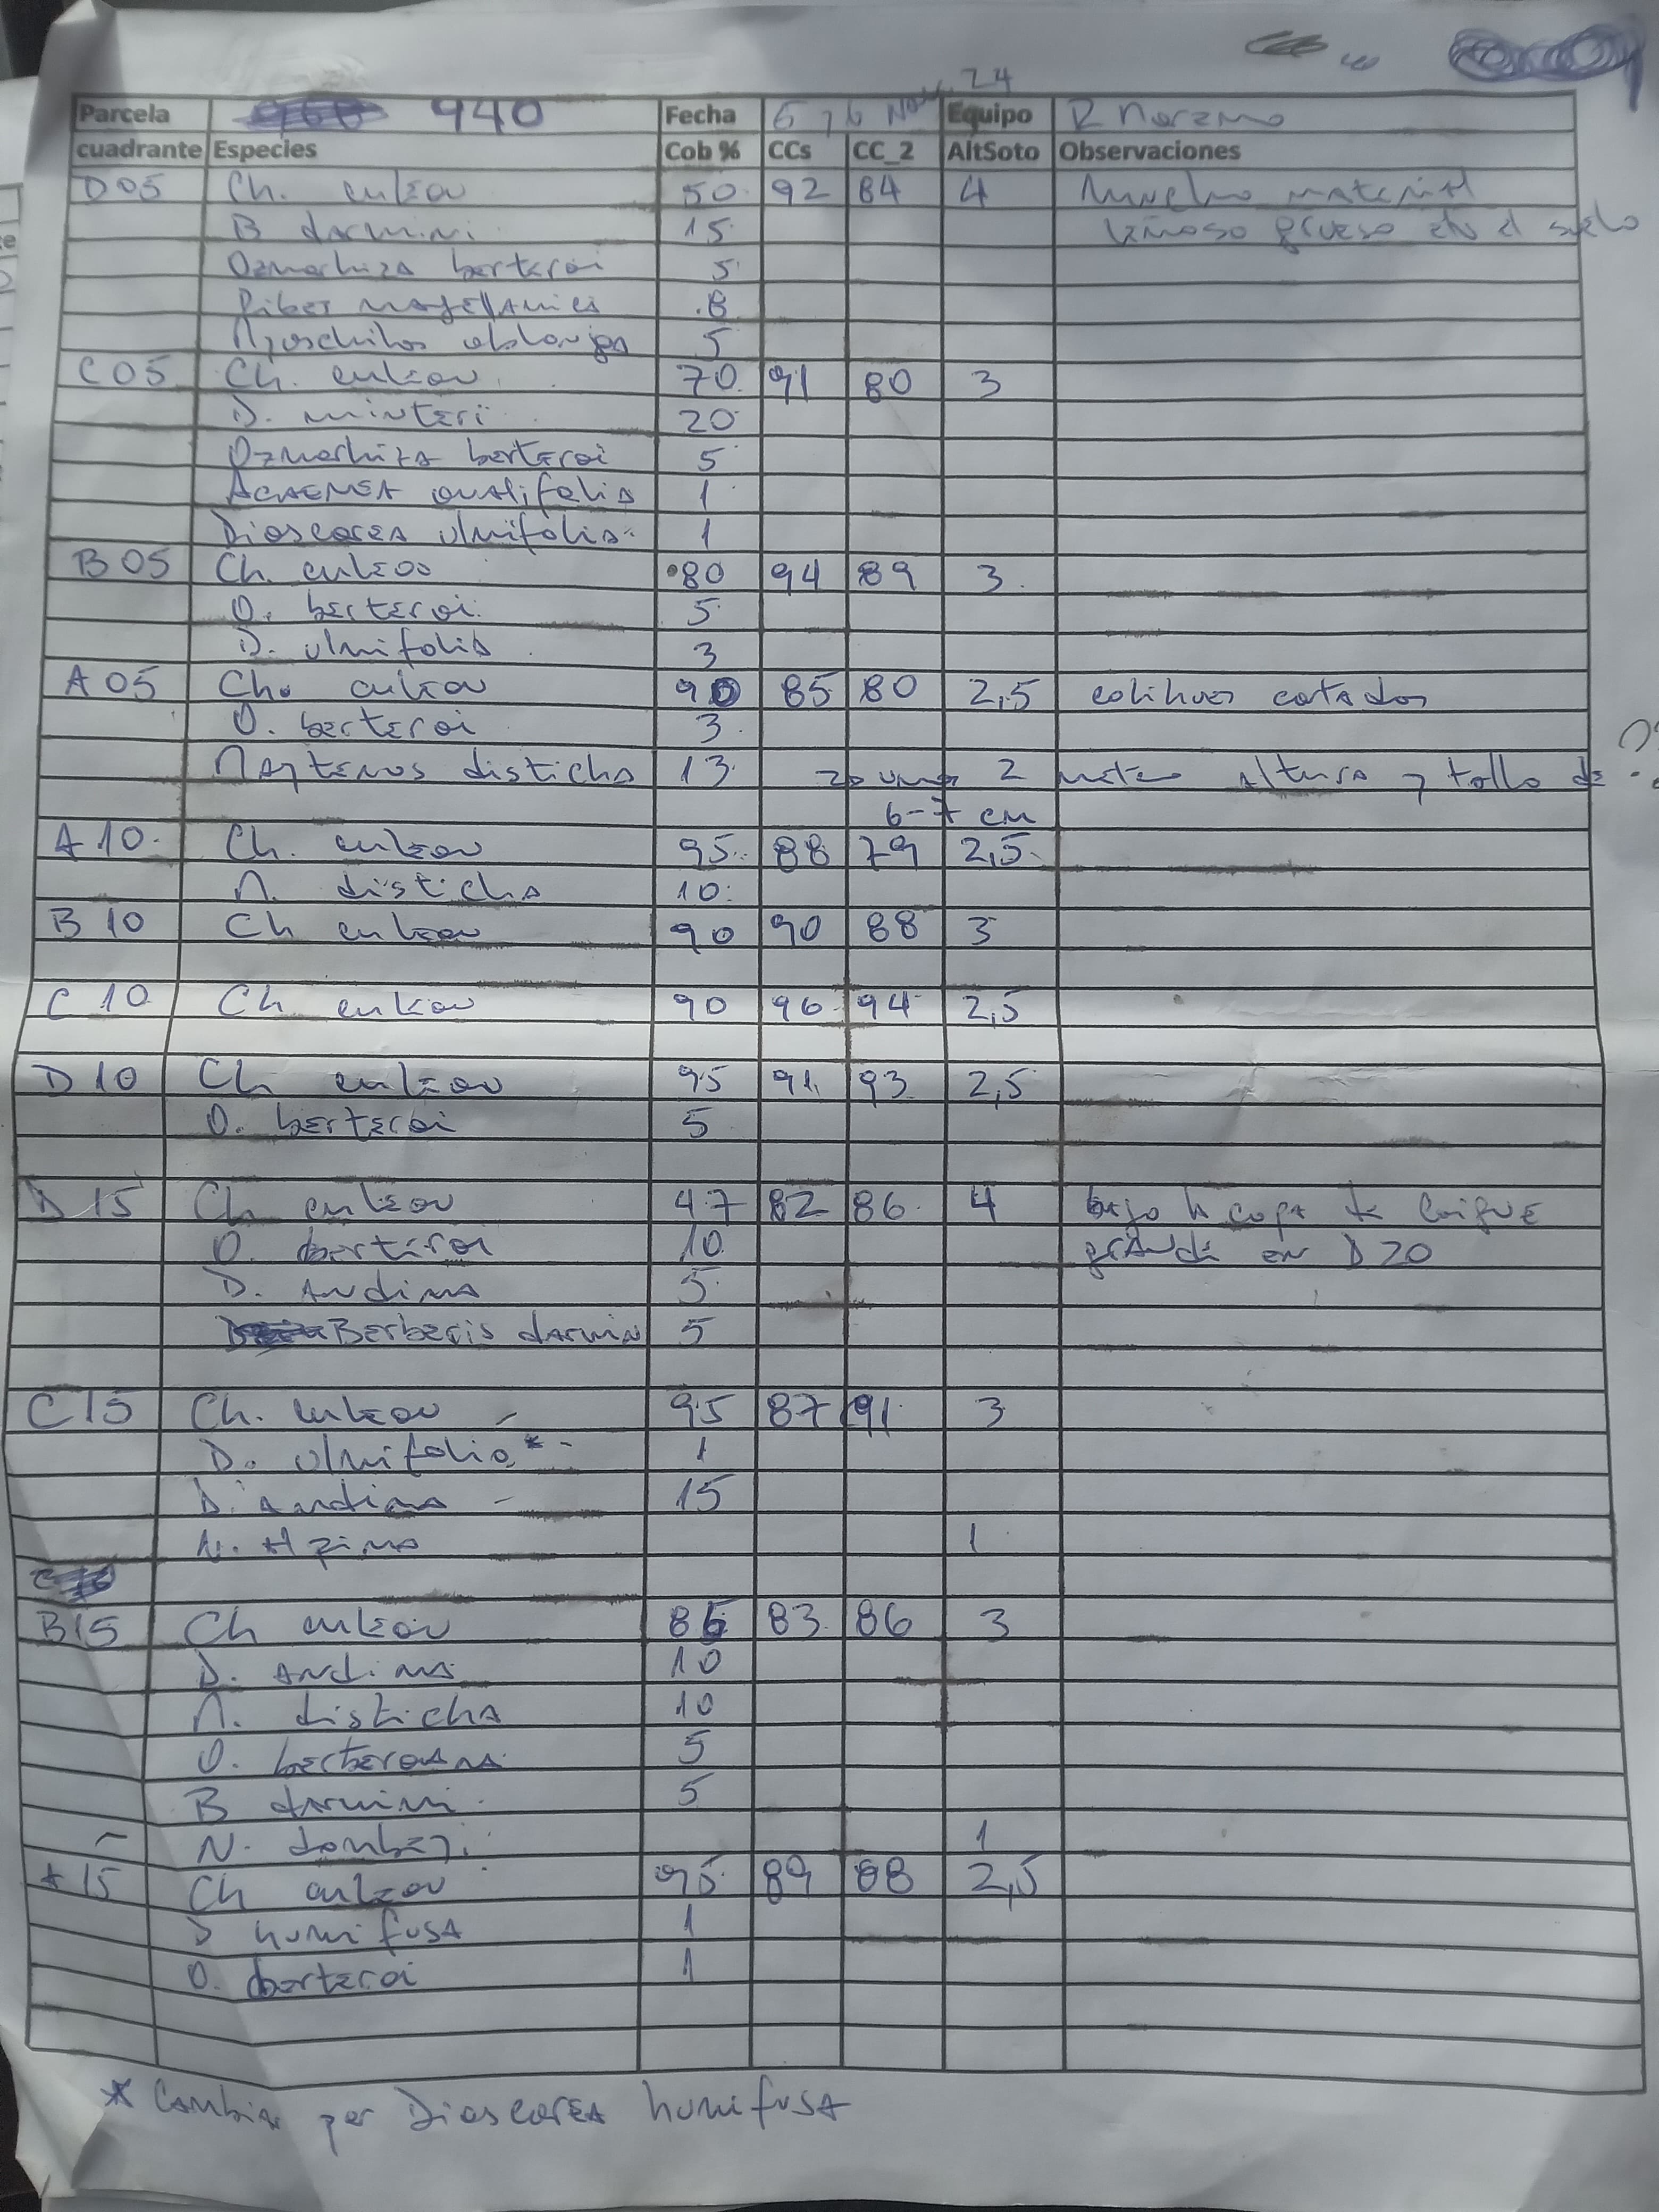 24
Parcela 940 Fecha 5 y 6 Nov. Equipo R Moreno
cuadrante Especies Cob % CCs CC_2 AltSoto Observaciones
D05 Ch. culeou 50 92 84 4 Mucho material
B darwini 15 leñoso grueso en el suelo
Ozmorhiza berteroi 5
Ribes magellanica 8
Myoschilos oblonga 5
C05 Ch. culeou 70 91 80 3
D. winteri 20
Ozmorhiza berteroi 5
Acaenea ovalifolia 1
Dioscorea ulmifolia 1
B05 Ch. culeou 80 94 89 3
O. berteroi 5
D. ulmifolia 3
A05 Ch. culeou 90 85 80 2,5 colihues cortados
O. berteroi 3
Maytenus disticha 13 2 metros altura y tallo de ??
6-7 cm
A10 Ch. culeou 95 88 79 2,5
M. disticha 10
B10 Ch culeou 90 90 88 3
C10 Ch culeou 90 96 94 2,5
D10 Ch culeou 95 91 93 2,5
O. berteroi 5
D15 Ch culeou 47 82 86 4 bajo la copa de Coigue
O. berteroi 10 grande en D20
D. Andina 5
Berberis darwin 5
C15 Ch. culeou 95 87 91 3
D. ulmifolia* 1
D. andina 15
N. Alpina 1
B15 Ch culeou 86 83 86 3
D. Andina 10
M. disticha 10
O. berteroana 5
B darwini 5
N. dombeyi 1
A15 Ch culeou 95 89 88 2,5
D humifusa 1
O. berteroi 1
* Cambiar por Dioscorea humifusa